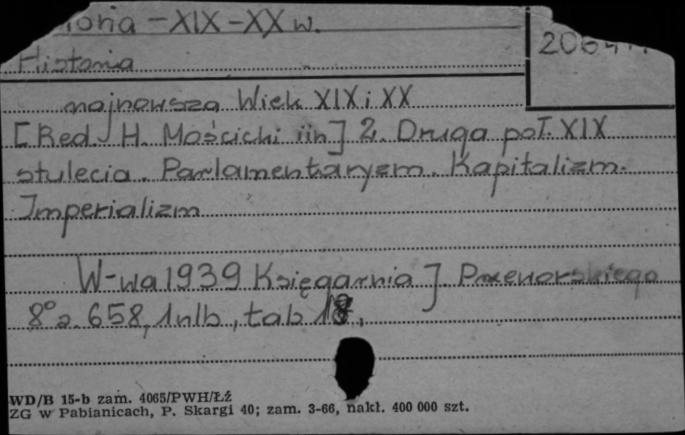 toria - XIX - XX w.
Historia
najnowsza Wiek XIX i XX
[Red. H. Mościcki i in] 2. Druga poł. XIX
stulecia. Parlamentaryzm. Kapitalizm.
Imperializm
W-wa 1939 Księgarnia J. Przeworskiego
8° s. 658, 1 nlb, tab 18,
WD/B 15-b zam. 4065/PWH/Łź
ZG w Pabianicach, P. Skargi 40; zam. 3-66, nakł. 400 000 szt.